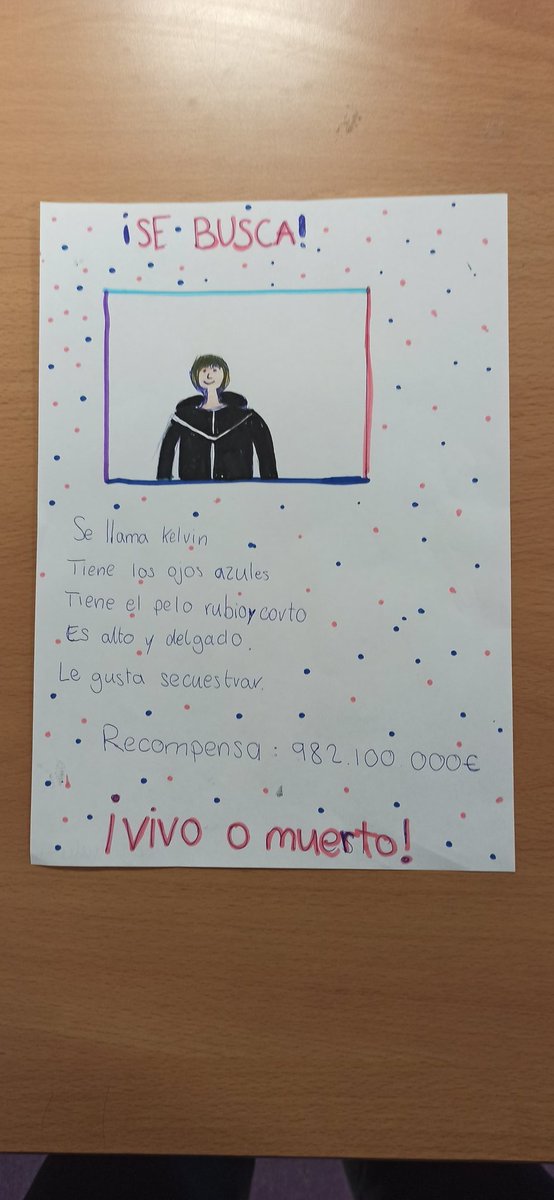 ¡SE BUSCA!
Se llama kelvin
Tiene los ojos azules
Tiene el pelo rubio y corto
Es alto y delgado.
Le gusta secuestrar.
Recompensa : 982.100 000€
¡VIVO o muerto!